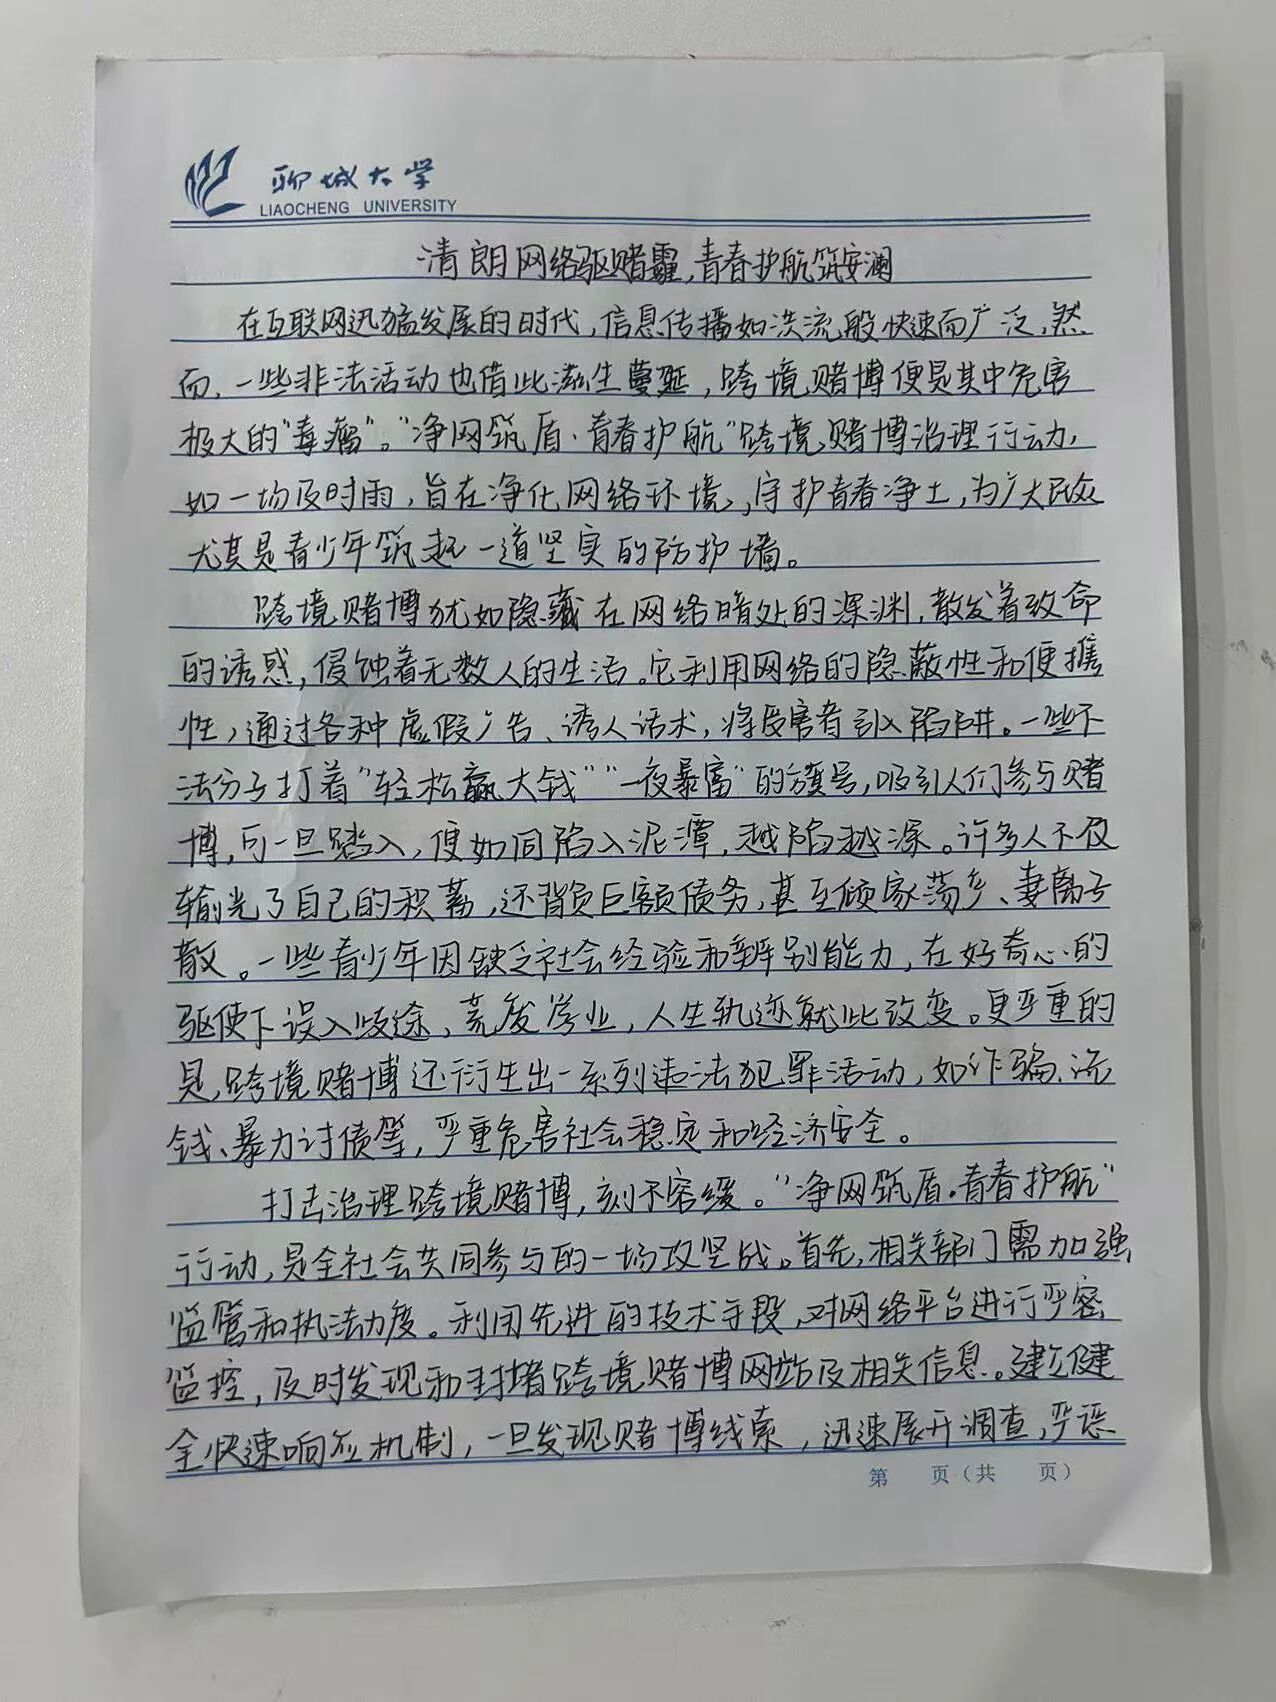 聊城大学
LIAOCHENG UNIVERSITY
清朗网络驱赌霾,青春护航筑安澜
在互联网迅猛发展的时代,信息传播如洪流般快速而广泛,然
而,一些非法活动也借此滋生蔓延,跨境赌博便是其中危害
极大的“毒瘤”。“净网筑盾·青春护航”跨境赌博治理行动,
如一场及时雨,旨在净化网络环境,守护青春净土,为广大民众
尤其是青少年筑起一道坚实的防护墙。
跨境赌博犹如隐藏在网络暗处的深渊,散发着致命
的诱惑,侵蚀着无数人的生活。它利用网络的隐蔽性和便携
性,通过各种虚假广告、诱人话术,将受害者引入陷阱。一些不
法分子打着“轻松赢大钱”“一夜暴富”的旗号,吸引人们参与赌
博,可一旦踏入,便如同陷入泥潭,越陷越深。许多人不仅
输光了自己的积蓄,还背负巨额债务,甚至倾家荡产、妻离子
散。一些青少年因缺乏社会经验和辨别能力,在好奇心的
驱使下误入歧途,荒废学业,人生轨迹就此改变。更严重的
是,跨境赌博还衍生出一系列违法犯罪活动,如诈骗、洗
钱、暴力讨债等,严重危害社会稳定和经济安全。
打击治理跨境赌博,刻不容缓。“净网筑盾·青春护航”
行动,是全社会共同参与的一场攻坚战。首先,相关部门需加强
监管和执法力度。利用先进的技术手段,对网络平台进行严密
监控,及时发现和封堵跨境赌博网站及相关信息。建立健
全快速响应机制,一旦发现赌博线索,迅速展开调查,严惩
第 页(共 页)